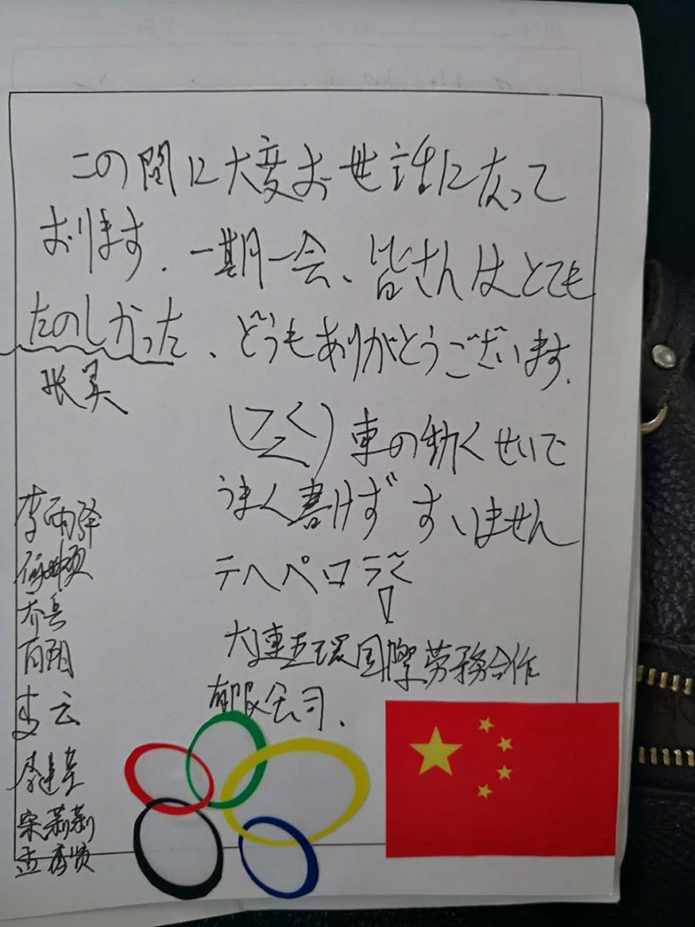 この間に大変お世話になって
おります.一期一会、皆さんはとても
たのしかった、どうもありがとうございます.
车の動くせいで
うまく書けず すいません
テヘペロ
大連五環国際劳務合作
有限公司.
李雨泽
乔兵
向阳
李云
李建华
宋莉莉